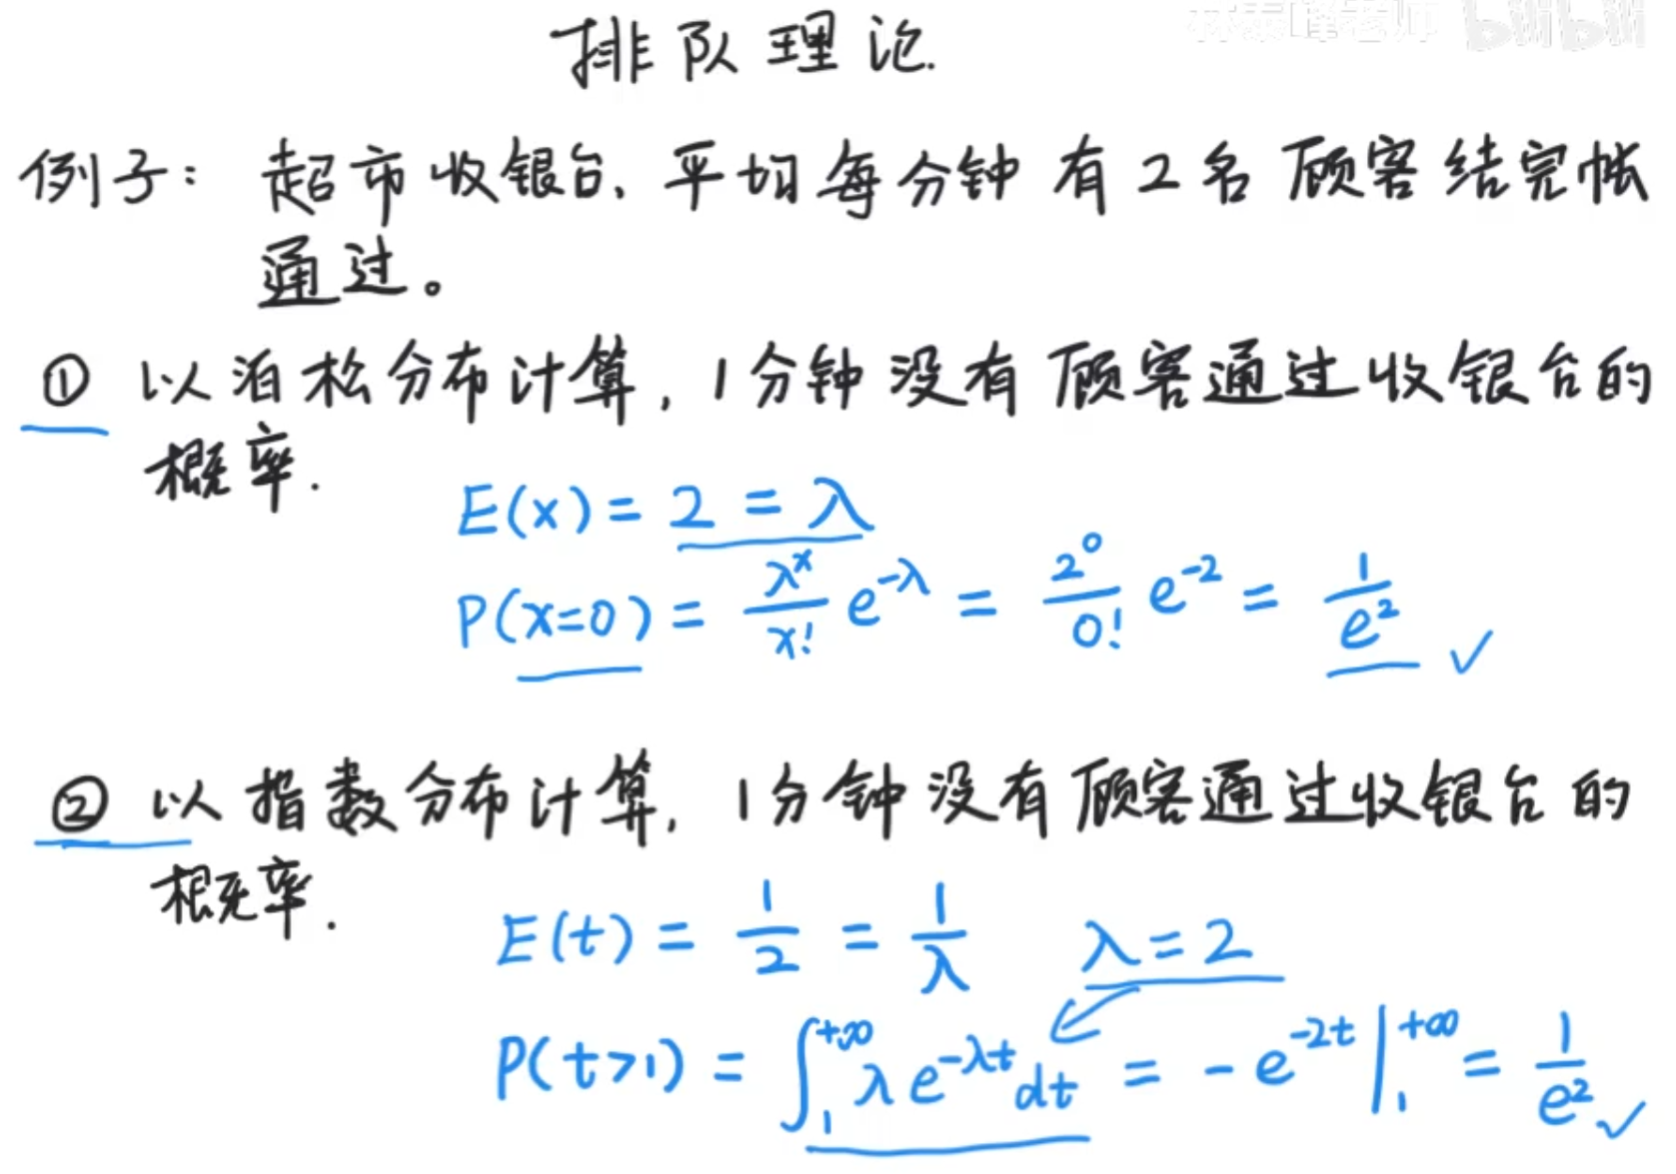 林泰峰老师 bilibili
排队理论.
例子: 超市收银台, 平均每分钟有2名顾客结完帐
通过。
① 以泊松分布计算, 1分钟没有顾客通过收银台的
概率.
E(x) = 2 = λ
P(x=0) = λ^x/x! e^{-λ} = 2^0/0! e^{-2} = 1/e^2 ✓
② 以指数分布计算, 1分钟没有顾客通过收银台的
概率.
E(t) = 1/2 = 1/λ λ=2
P(t>1) = ∫_1^{+∞} λe^{-λt}dt = -e^{-2t}|_1^{+∞} = 1/e^2 ✓